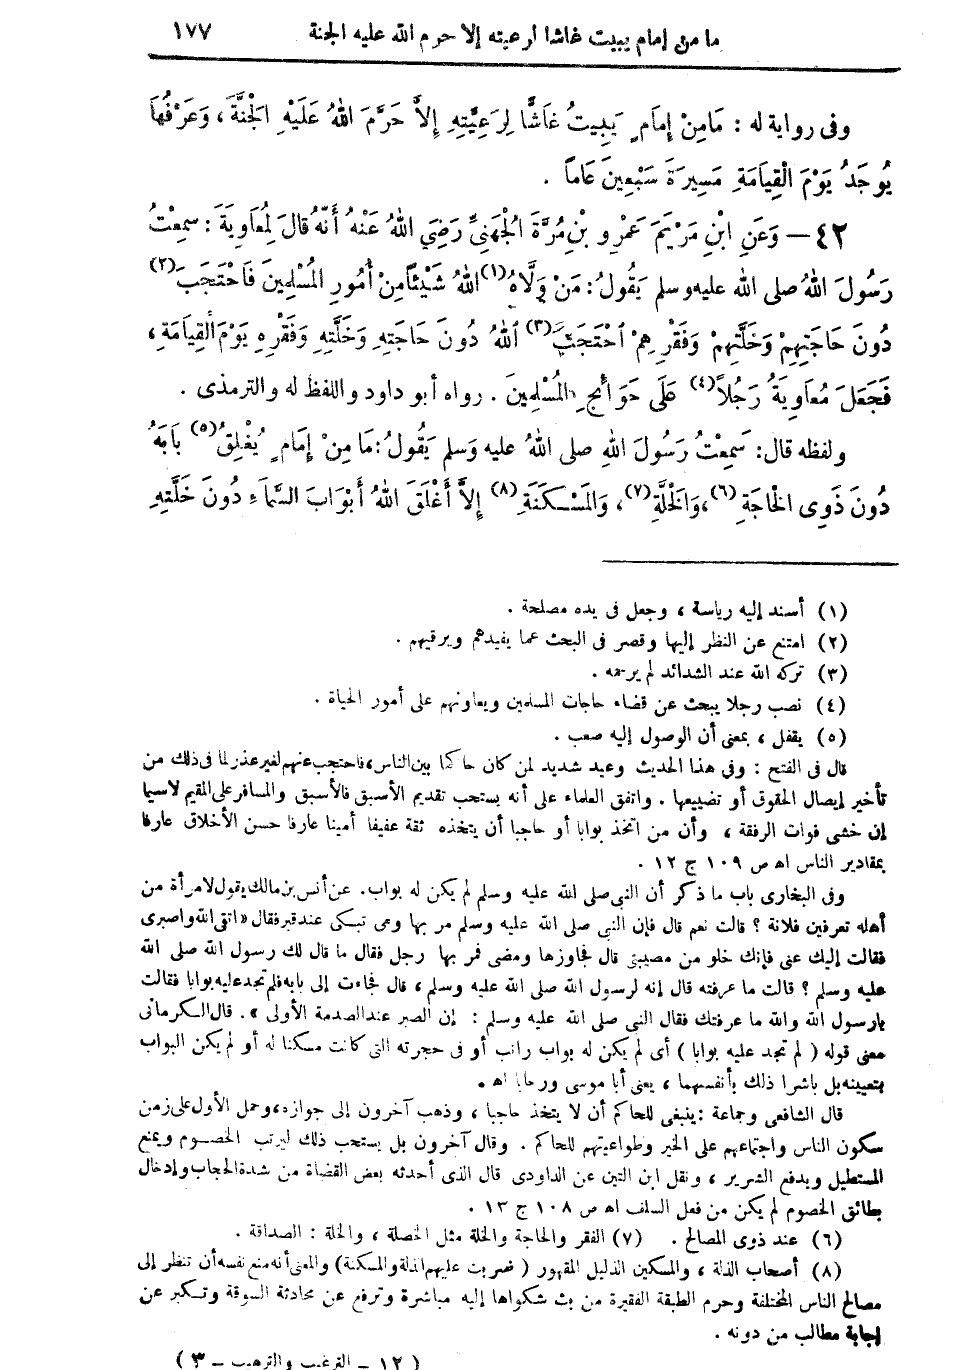 ما من إمام يبيت غاشا لرعيته إلا حرم الله عليه الجنة ١٧٧
وفى رواية له : مَامِنْ إِمَامٍ يَبِيتُ غَاشًّا لِرَعِيَّتِهِ إِلاَّ حَرَّمَ اللهُ عَلَيْهِ الْجَنَّةَ ، وَعَرْفُهَا
يُوجَدُ يَوْمَ الْقِيَامَةِ مَسِيرَةَ سَبْعِينَ عَاماً .
٤٢ — وَعَنِ ابْنِ مَرْيَمَ عَمْرِو بْنِ مُرَّةَ الْجُهَنِيِّ رَضِيَ اللهُ عَنْهُ أَنَّهُ قَالَ لِمُعَاوِيَةَ : سَمِعْتُ
رَسُولَ اللهِ صلى الله عليه وسلم يَقُولُ : مَنْ وَلَّاهُ (١) اللهُ شَيْئًا مِنْ أُمُورِ الْمُسْلِمِينَ فَاحْتَجَبَ (٢)
دُونَ حَاجَتِهِمْ وَخَلَّتِهِمْ وَفَقْرِهِمْ احْتَجَبَ (٣) اللهُ دُونَ حَاجَتِهِ وَخَلَّتِهِ وَفَقْرِهِ يَوْمَ الْقِيَامَةِ ،
فَجَعَلَ مُعَاوِيَةُ رَجُلاً (٤) عَلَى حَوَائِجِ الْمُسْلِمِينَ . رواه أبو داود واللفظ له والترمذى .
ولفظه قال : سَمِعْتُ رَسُولَ اللهِ صلى اللهُ عليه وَسلم يَقُولُ : مَا مِنْ إِمَامٍ يُغْلِقُ (٥) بَابَهُ
دُونَ ذَوِى الْحَاجَةِ (٦) ، وَالْخَلَّةِ (٧) ، وَالْمَسْكَنَةِ (٨) إِلاَّ أَغْلَقَ اللهُ أَبْوَابَ السَّمَاءِ دُونَ خَلَّتِهِ
(١) أسند إليه رياسة ، وجعل فى يده مصلحة .
(٢) امتنع عن النظر إليها وقصر فى البحث عما يفيدهم ويرقيهم .
(٣) تركه الله عند الشدائد لم يرحمه .
(٤) نصب رجلا يبحث عن قضاء حاجات المسلمين ويعاونهم على أمور الحياة .
(٥) يقفل ، بمعنى أن الوصول إليه صعب .
قال فى الفتح : وفى هذا الحديث وعيد شديد لمن كان حاكما بين الناس ، فاحتجب عنهم لغير عذر لما فى ذلك من
تأخير إيصال الحقوق أو تضييعها . واتفق العلماء على أنه يستحب تقديم الأسبق فالأسبق والمسافر على المقيم لاسيما
إن خشى فوات الرفقة ، وأن من اتخذ بوابا أو حاجبا أن يتخذه ثقة عفيفا أمينا عارفا حسن الأخلاق عارفا
بمقادير الناس اه ص ١٠٩ ج ١٢ .
وفى البخارى باب ما ذكر أن النبى صلى الله عليه وسلم لم يكن له بواب . عن أنس بن مالك يقول لامرأة من
أهله تعرفين فلانة ؟ قالت نعم قال فإن النبى صلى الله عليه وسلم مر بها وهى تبكى عند قبر فقال « اتقى الله واصبرى
فقالت إليك عنى فإنك خلو من مصيبتى قال فجاوزها ومضى فمر بها رجل فقال ما قال لك رسول الله صلى الله
عليه وسلم ؟ قالت ما عرفته قال إنه لرسول الله صلى الله عليه وسلم ، قال فجاءت إلى بابه فلم تجد عليه بوابا فقالت
يارسول الله والله ما عرفتك فقال النبى صلى الله عليه وسلم : إن الصبر عند الصدمة الأولى » . قال الكرمانى
معنى قوله ( لم تجد عليه بوابا ) أى لم يكن له بواب راتب أو فى حجرته التى كانت مسكنا له أو لم يكن البواب
بتعيينه بل باشرا ذلك بأنفسهما ، يعنى أبا موسى ورحابا اه .
قال الشافعى وجماعة : ينبغى للحاكم أن لا يتخذ حاجبا ، وذهب آخرون إلى جوازه ، وحمل الأول على زمن
سكون الناس واجتماعهم على الخير وطواعيتهم للحاكم . وقال آخرون بل يستحب ذلك ليرتب الخصوم ويمنع
المستطيل ويدفع الشرير ، ونقل ابن التين عن الداودى قال الذى أحدثه بعض القضاة من شدة الحجاب وإدخال
بطائق الخصوم لم يكن من فعل السلف اه ص ١٠٨ ج ١٣ .
(٦) عند ذوى المصالح . (٧) الفقر والحاجة والخلة مثل الخصلة ، والخلة : الصداقة .
(٨) أصحاب الذلة ، والمسكين الذليل المقهور ( ضربت عليهم الذلة والمسكنة ) والمعنى أنه منع نفسه أن تنظر إلى
مصالح الناس المختلفة وحرم الطبقة الفقيرة من بث شكواها إليه مباشرة وترفع عن محادثة السوقة وتكبر عن
إجابة مطالب من دونه .
( ١٢ — الترغيب والترهيب — ٣ )